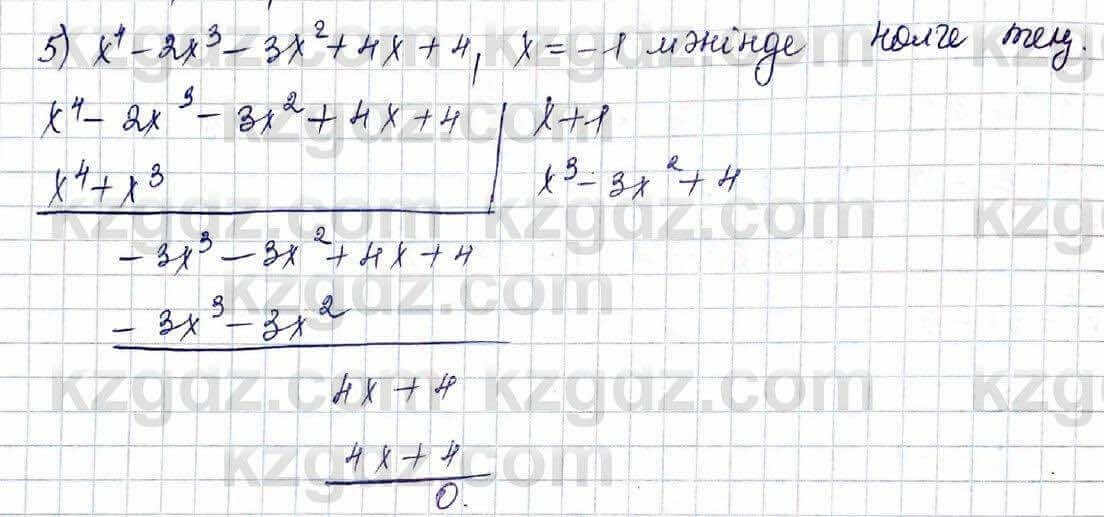 5) x⁴ - 2x³ - 3x² + 4x + 4, x = -1 мәнінде нөлге тең.
x⁴ - 2x³ - 3x² + 4x + 4 | x + 1
x⁴ + x³ | x³ - 3x² + 4
- 3x³ - 3x² + 4x + 4
- 3x³ - 3x²
4x + 4
4x + 4
0.
kzgdz.com